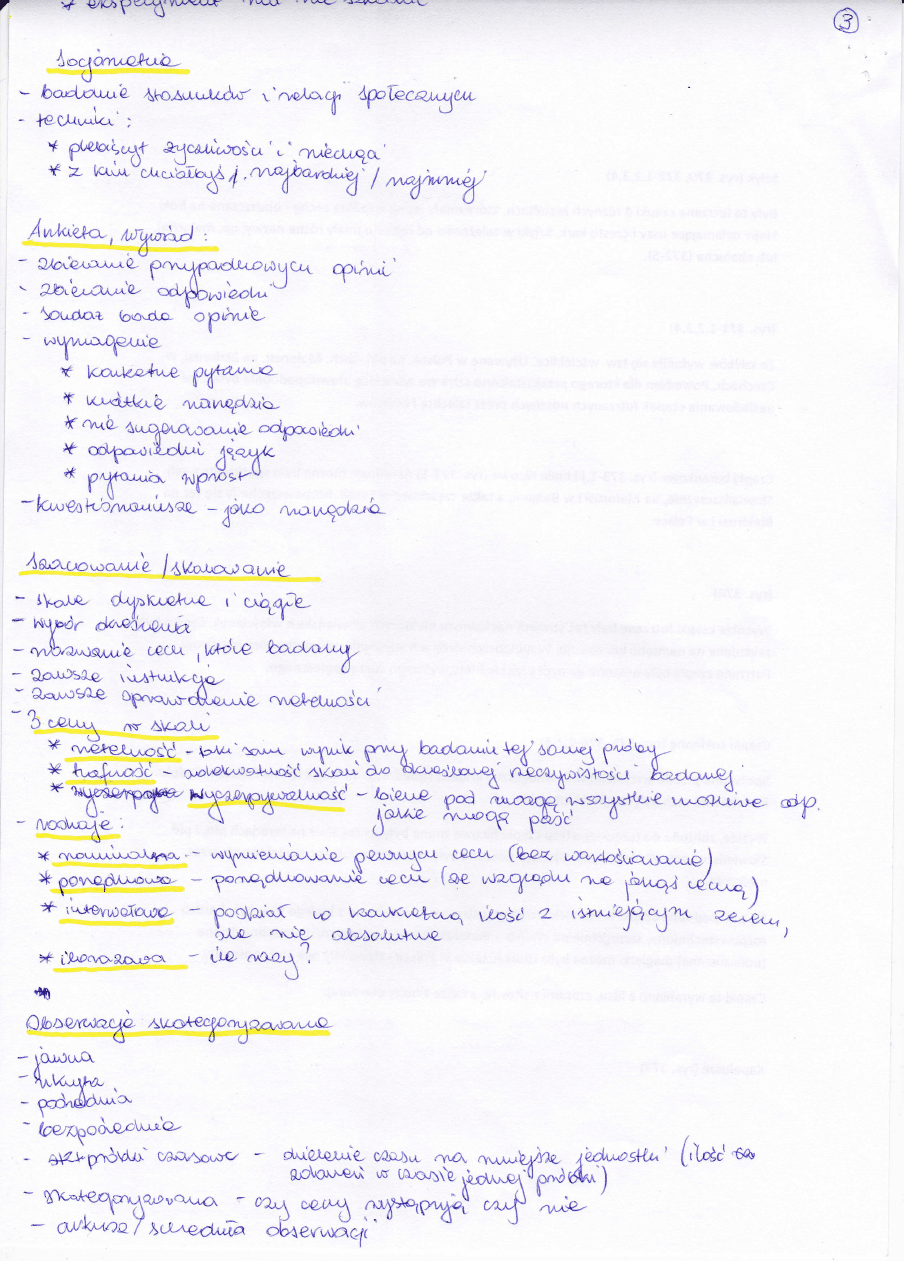 * eksperyment ma nie szkodzić
3
Socjometria
- badanie stosunków i relacji społecznych
- techniki:
* plebiscyt życzliwości i niechęci
* z kim chciałbyś j. najbardziej / najmniej
Ankieta, wywiad:
- zbieranie przypadkowych opinii
- zbieranie odpowiedzi
- sondaż bada opinie
- wymagenie
* konkretne pytania
* krótkie narzędzia
* nie sugerowanie odpowiedzi
* odpowiedni język
* pytania wprost
- kwestionariusze - jako narzędzia
Szacowanie / skalowanie
- skale dyskretne i ciągłe
- wybór określenia
- nazwanie cech, które badamy
- zawsze instrukcja
- zawsze sprawdzenie rzetelności
- 3 cechy w skali
* rzetelność - taki sam wynik przy badaniu tej samej próby
* trafność - adekwatność skali do określonej rzeczywistości badanej
* wyczerpywalność - bierze pod uwagę wszystkie możliwe odp.
jakie mogą paść
- rodzaje:
* nominalna - wymienianie pewnych cech (bez wartościowania)
* porządkowa - porządkowanie cech (ze względu na jakąś cechę)
* interwałowa - podział w konkretną ilość z istniejącym zerem,
ale nie absolutne
* ilorazowa - ile razy?
Obserwacje skategoryzowane
- jawna
- ukryta
- pośrednia
- bezpośrednia
- próbki czasowe - dzielenie czasu na mniejsze jednostki (ilość
zdarzeń w czasie jednej próbki)
- skategoryzowana - czy cechy występują czy nie
- arkusz / scheduła obserwacji